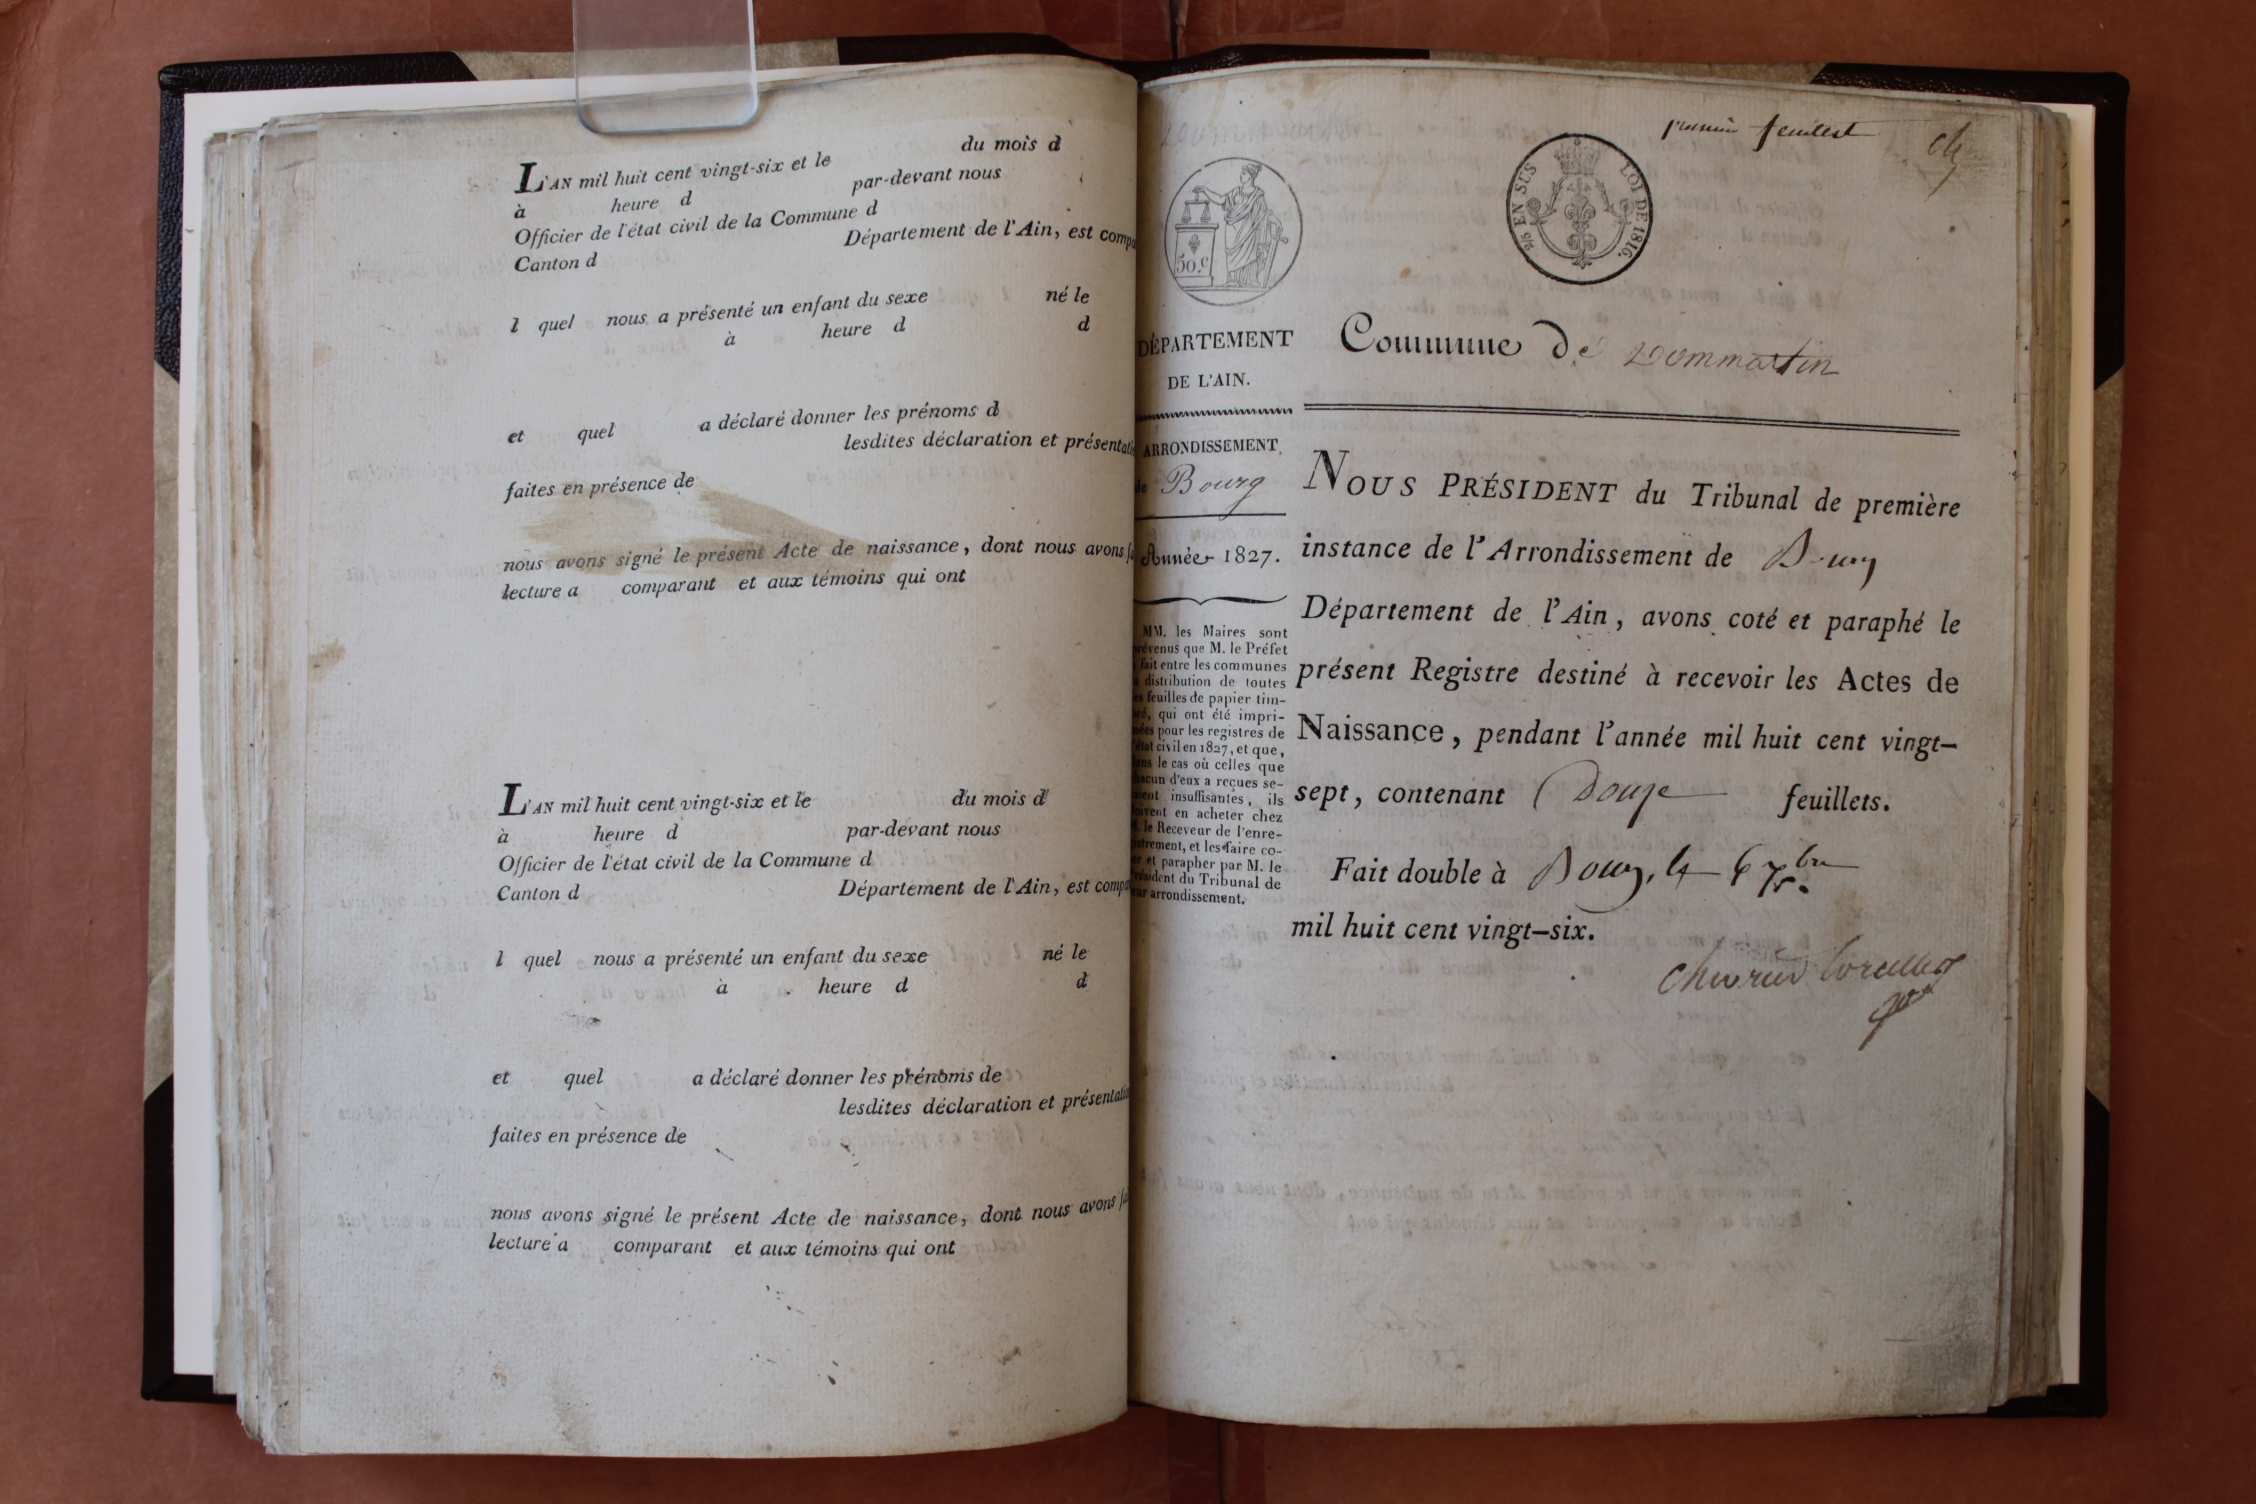 L'AN mil huit cent vingt-six et le du mois d
à heure d par-devant nous
Officier de l'état civil de la Commune d
Canton d Département de l'Ain, est compa
l quel nous a présenté un enfant du sexe né le
à heure d d
et quel a déclaré donner les prénoms d
lesdites déclaration et présentatio
faites en présence de
nous avons signé le présent Acte de naissance, dont nous avons fa
lecture a comparant et aux témoins qui ont
L'AN mil huit cent vingt-six et le du mois d
à heure d par-devant nous
Officier de l'état civil de la Commune d
Canton d Département de l'Ain, est compa
l quel nous a présenté un enfant du sexe né le
à heure d d
et quel a déclaré donner les prénoms de
lesdites déclaration et présentatio
faites en présence de
nous avons signé le présent Acte de naissance, dont nous avons fa
lecture a comparant et aux témoins qui ont
premier feuillet
50.c
EN SUS LOI DE 1816.
DÉPARTEMENT
DE L'AIN.
ARRONDISSEMENT
de Bourg
Année 1827.
MM. les Maires sont
prévenus que M. le Préfet
a fait entre les communes
la distribution de toutes
les feuilles de papier tim-
bré, qui ont été impri-
mées pour les registres de
l'état civil en 1827, et que,
dans le cas où celles que
chacun d'eux a reçues se-
raient insuffisantes, ils
doivent en acheter chez
M. le Receveur de l'enre-
gistrement, et les faire co-
ter et parapher par M. le
Président du Tribunal de
leur arrondissement.
Commune de Dommartin
NOUS PRÉSIDENT du Tribunal de première
instance de l'Arrondissement de Bourg
Département de l'Ain, avons coté et paraphé le
présent Registre destiné à recevoir les Actes de
Naissance, pendant l'année mil huit cent vingt-
sept, contenant Douze feuillets.
Fait double à Bourg, le 6 7bre
mil huit cent vingt-six.